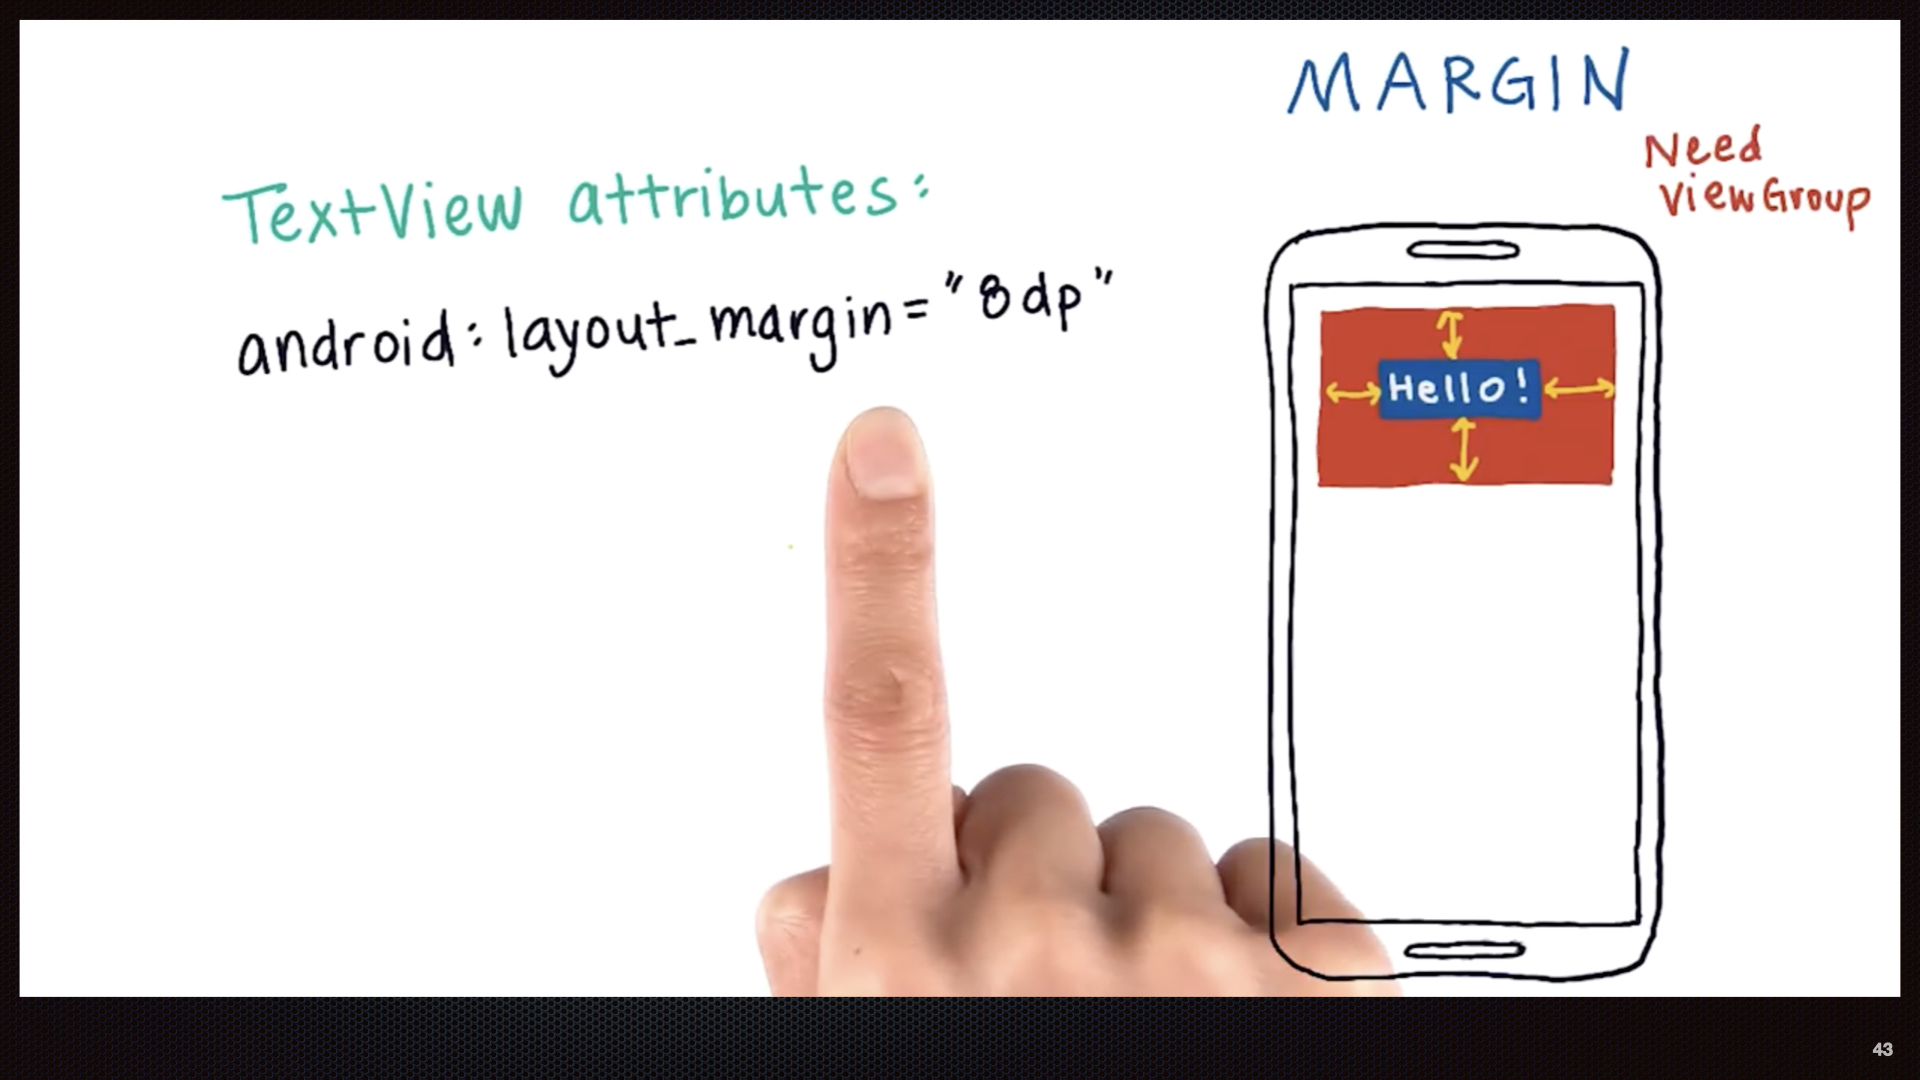 MARGIN
Need
ViewGroup
TextView attributes:
android:layout_margin="8dp"
Hello!
43